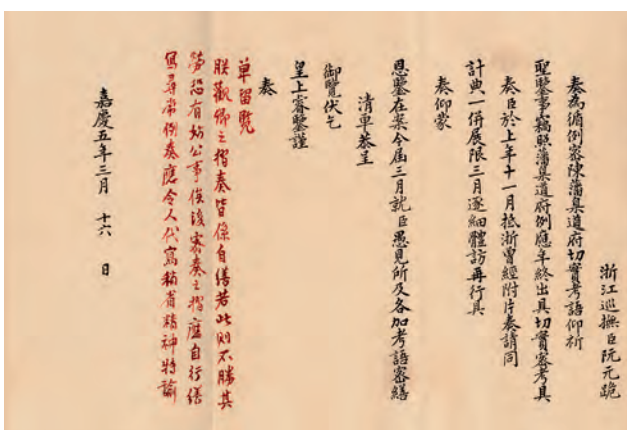 浙江巡撫臣阮元跪
奏為循例密陳藩臬道府切實考語仰祈
聖鑒事竊照藩臬道府例應年終出具切實密考具
奏臣於上年十一月抵浙曾經附片奏請同
計典一併展限三月逐細體訪再行具
奏仰蒙
恩鑒在案今屆三月就臣愚見所及各加考語密繕
清單恭呈
御覽伏乞
皇上睿鑒謹
奏
單留覽
朕觀卿之摺奏皆係自繕若此則不勝其
勞恐有妨公事俟後密奏之摺應自行繕
寫尋常例奏應令人代寫稍省精神特諭
嘉慶五年三月 十六 日